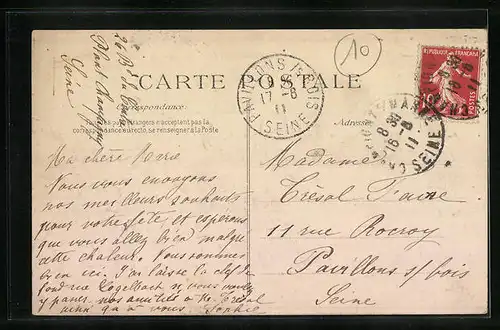 26 Bd
Seine
10
CARTE POSTALE
Correspondance
Tous les pays étrangers n'acceptent pas la
correspondance au recto, se renseigner à la Poste
Adresse
PAVILLONS S/S BOIS
17 -8
11
SEINE
REPUBLIQUE FRANÇAISE
POSTES
8 30
16 -8
11
SEINE
Ma chère
Nous vous envoyons
nos meilleurs souhaits
pour votre fête et espérons
que vous allez bien malgré
cette chaleur. Nous sommes
bien ici. J'ai laissé la clef du
fond rue Cogelbach si vous voulez
y passer nos amitiés à Mr Trésol
ainsi qu'à vous Sophie
Madame
Trésol Favre
11 rue Rocroy
Pavillons s/ bois
Seine